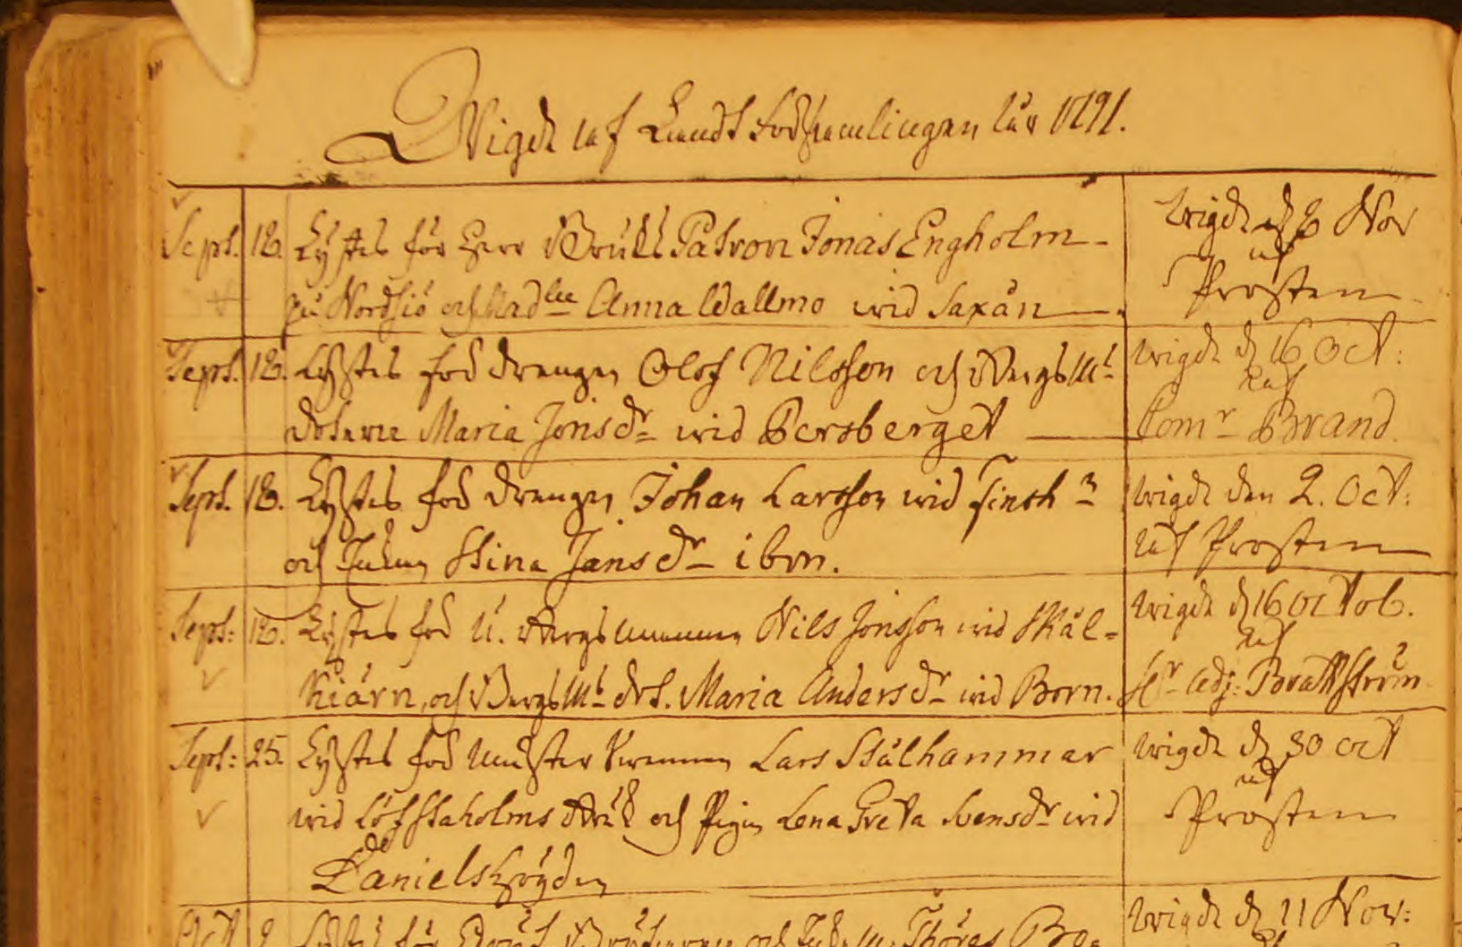 Wigde af Lundsförsamlingen åår 1791.
Sept. 18. Lystes för Herr Bruks Patron Jonas Engholm wigde d 6 Nov
på Nordsjö och Mad:lle Anna Wallmo wid Saxån af Prosten
Sept. 18. Lystes för drengen Olof Nilsson och BergsM:s wigde d 16 Oct:
dotteren Maria Jonsd:r wid Persberget af Com:r Brand.
Sept. 18. Lystes för drengen Johan Larsson wid Finsh:n wigde den 2. Oct:
och Stina Jansd:r ibm. af Prosten
Sept: 18. Lystes för U. Bergsmannen Nils Jonsson wid Skål- wigde d 16 Octob.
kiärn, och BergsM:s drt. Maria Andersd:r wid Born. af H:r Adj: Brattström
Sept: 25. Lystes för Mäster Lars Stålhammar wigde d 30 Oct
wid Löfstaholms Bruk och Pigan Lena Greta Svensd:r wid af Prosten
Danielshöyden
Oct 2 Lystes för och wigde d 11 Nov: